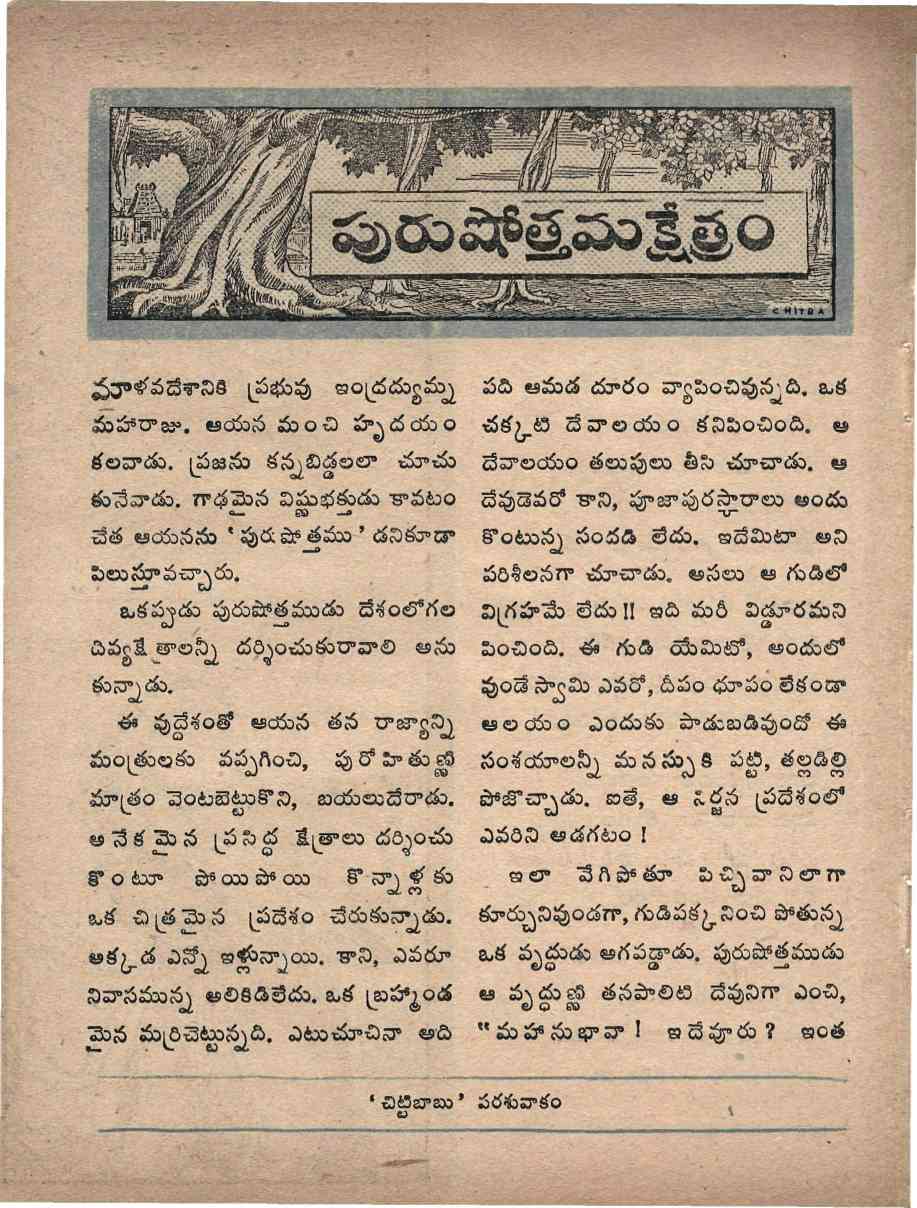 పురుషోత్తమక్షేత్రం
CHITRA
మాళవదేశానికి ప్రభువు ఇంద్రద్యుమ్న
మహారాజు. ఆయన మంచి హృదయం
కలవాడు. ప్రజను కన్నబిడ్డలలా చూచు
కునేవాడు. గాఢమైన విష్ణుభక్తుడు కావటం
చేత ఆయనను ‘పురుషోత్తము’ డనికూడా
పిలుస్తూవచ్చారు.
ఒకప్పుడు పురుషోత్తముడు దేశంలోగల
దివ్యక్షేత్రాలన్నీ దర్శించుకురావాలి అను
కున్నాడు.
ఈ వుద్దేశంతో ఆయన తన రాజ్యాన్ని
మంత్రులకు వప్పగించి, పురోహితుణ్ణి
మాత్రం వెంటబెట్టుకొని, బయలుదేరాడు.
అనేకమైన ప్రసిద్ధ క్షేత్రాలు దర్శించు
కొంటూ పోయిపోయి కొన్నాళ్లకు
ఒక చిత్రమైన ప్రదేశం చేరుకున్నాడు.
అక్కడ ఎన్నో ఇళ్లున్నాయి. కాని, ఎవరూ
నివాసమున్న అలికిడిలేదు. ఒక బ్రహ్మాండ
మైన మర్రిచెట్టున్నది. ఎటుచూచినా అది
పది ఆమడ దూరం వ్యాపించివున్నది. ఒక
చక్కటి దేవాలయం కనిపించింది. ఆ
దేవాలయం తలుపులు తీసి చూచాడు. ఆ
దేవుడెవరో కాని, పూజాపురస్కారాలు అందు
కొంటున్న సందడి లేదు. ఇదేమిటా అని
పరిశీలనగా చూచాడు. అసలు ఆ గుడిలో
విగ్రహమే లేదు!! ఇది మరీ విడ్డూరమని
పించింది. ఈ గుడి యేమిటో, అందులో
వుండే స్వామి ఎవరో, దీపం ధూపం లేకండా
ఆలయం ఎందుకు పాడుబడివుందో ఈ
సంశయాలన్నీ మనస్సుకి పట్టి, తల్లడిల్లి
పోజొచ్చాడు. ఐతే, ఆ నిర్జన ప్రదేశంలో
ఎవరిని అడగటం!
ఇలా వేగిపోతూ పిచ్చివానిలాగా
కూర్చునివుండగా, గుడిపక్కనించి పోతున్న
ఒక వృద్ధుడు అగపడ్డాడు. పురుషోత్తముడు
ఆ వృద్ధుణ్ణి తనపాలిటి దేవునిగా ఎంచి,
“మహానుభావా! ఇదేవూరు? ఇంత
‘చిట్టిబాబు’ పరశువాకం